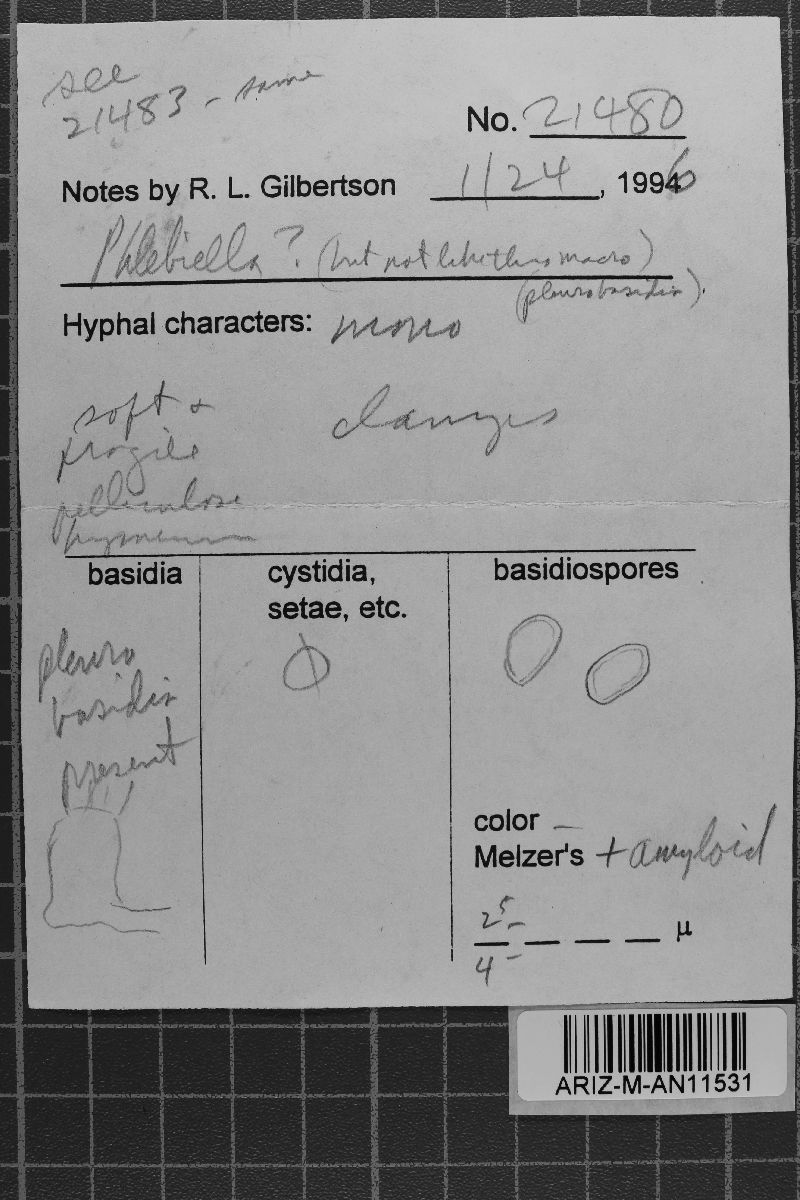 see
21483 - same
No. 21480
Notes by R. L. Gilbertson 1/24, 1996
Phlebiella? (but not like this macro)
(pleurobasidia).
Hyphal characters: mono
soft + clamps
fragile
pelliculose
hymenium
basidia cystidia, basidiospores
setae, etc.
pleuro
basidia
present
color —
Melzer's + amyloid
25 –
— — — — µ
4 –
ARIZ-M-AN11531